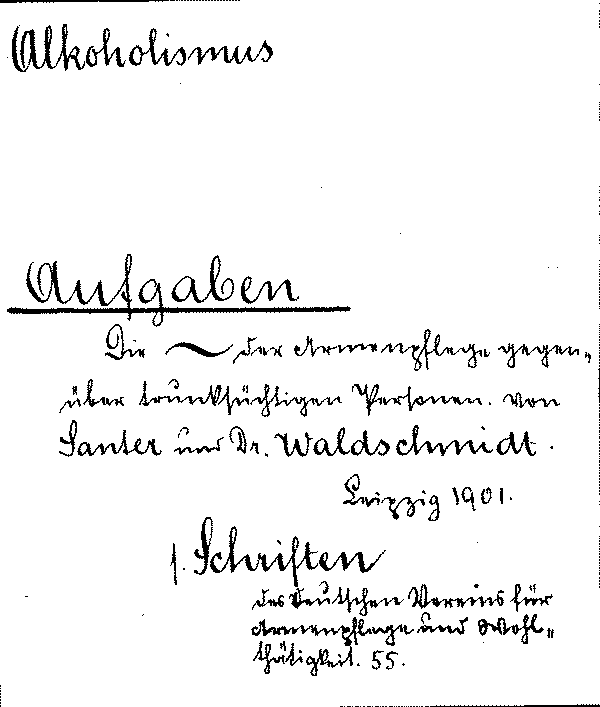 Alkoholismus
Aufgaben
Die ~ der Armenpflege gegen-
über trunksüchtigen Personen. von
Santer und Dr. Waldschmidt.
Leipzig 1901.
s. Schriften
des Deutschen Vereins für
Armenpflege und Wohl-
thätigkeit. 55.